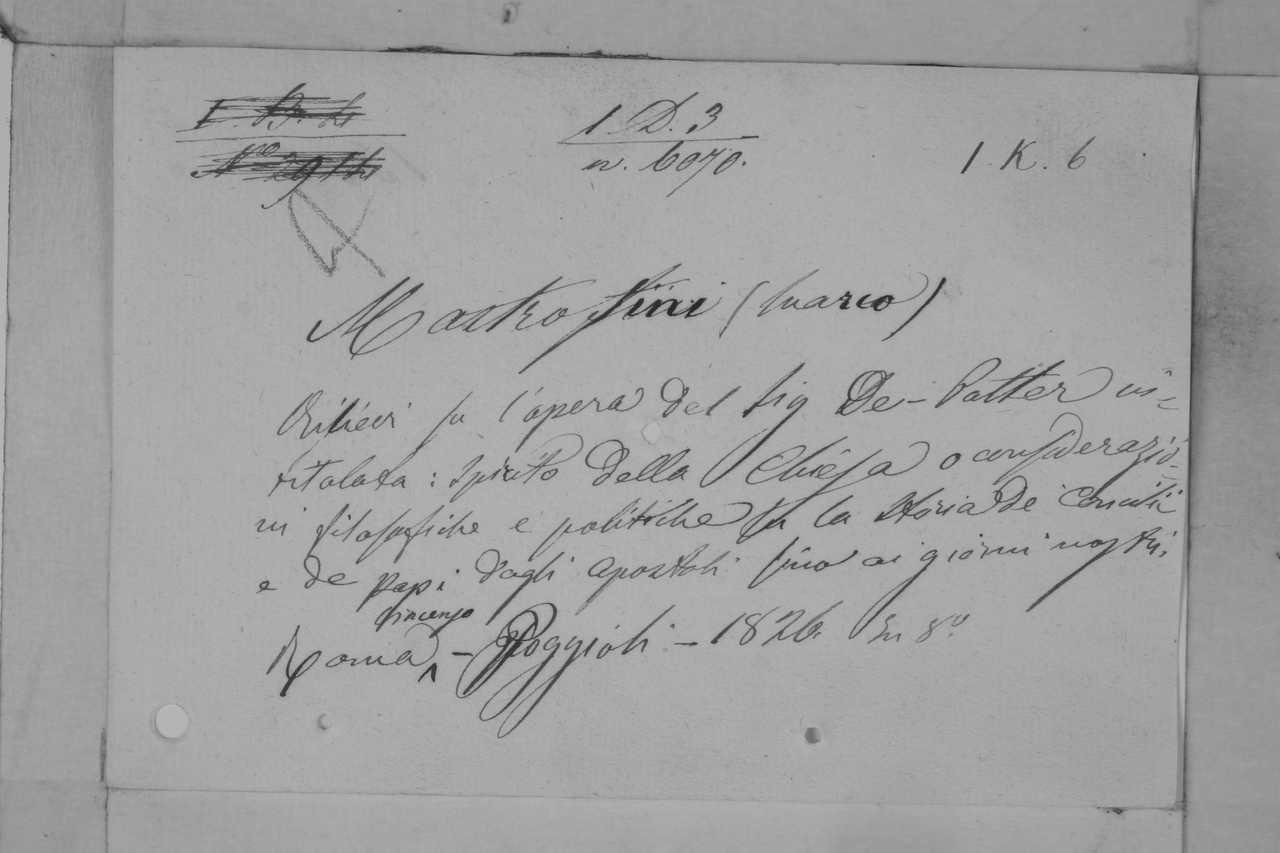 1. D. 3
n. 6070.
1. K. 6
Mastrofini (Marco)
Rilievi su l'opera del Sig De-Potter in=
titolata: Spirito della Chiesa o considerazio-
ni filosofiche e politiche su la Storia de Concilii
e de Papi dagli apostoli sino ai giorni nostri.
Vincenzo
Roma - Poggioli - 1826. In 8º